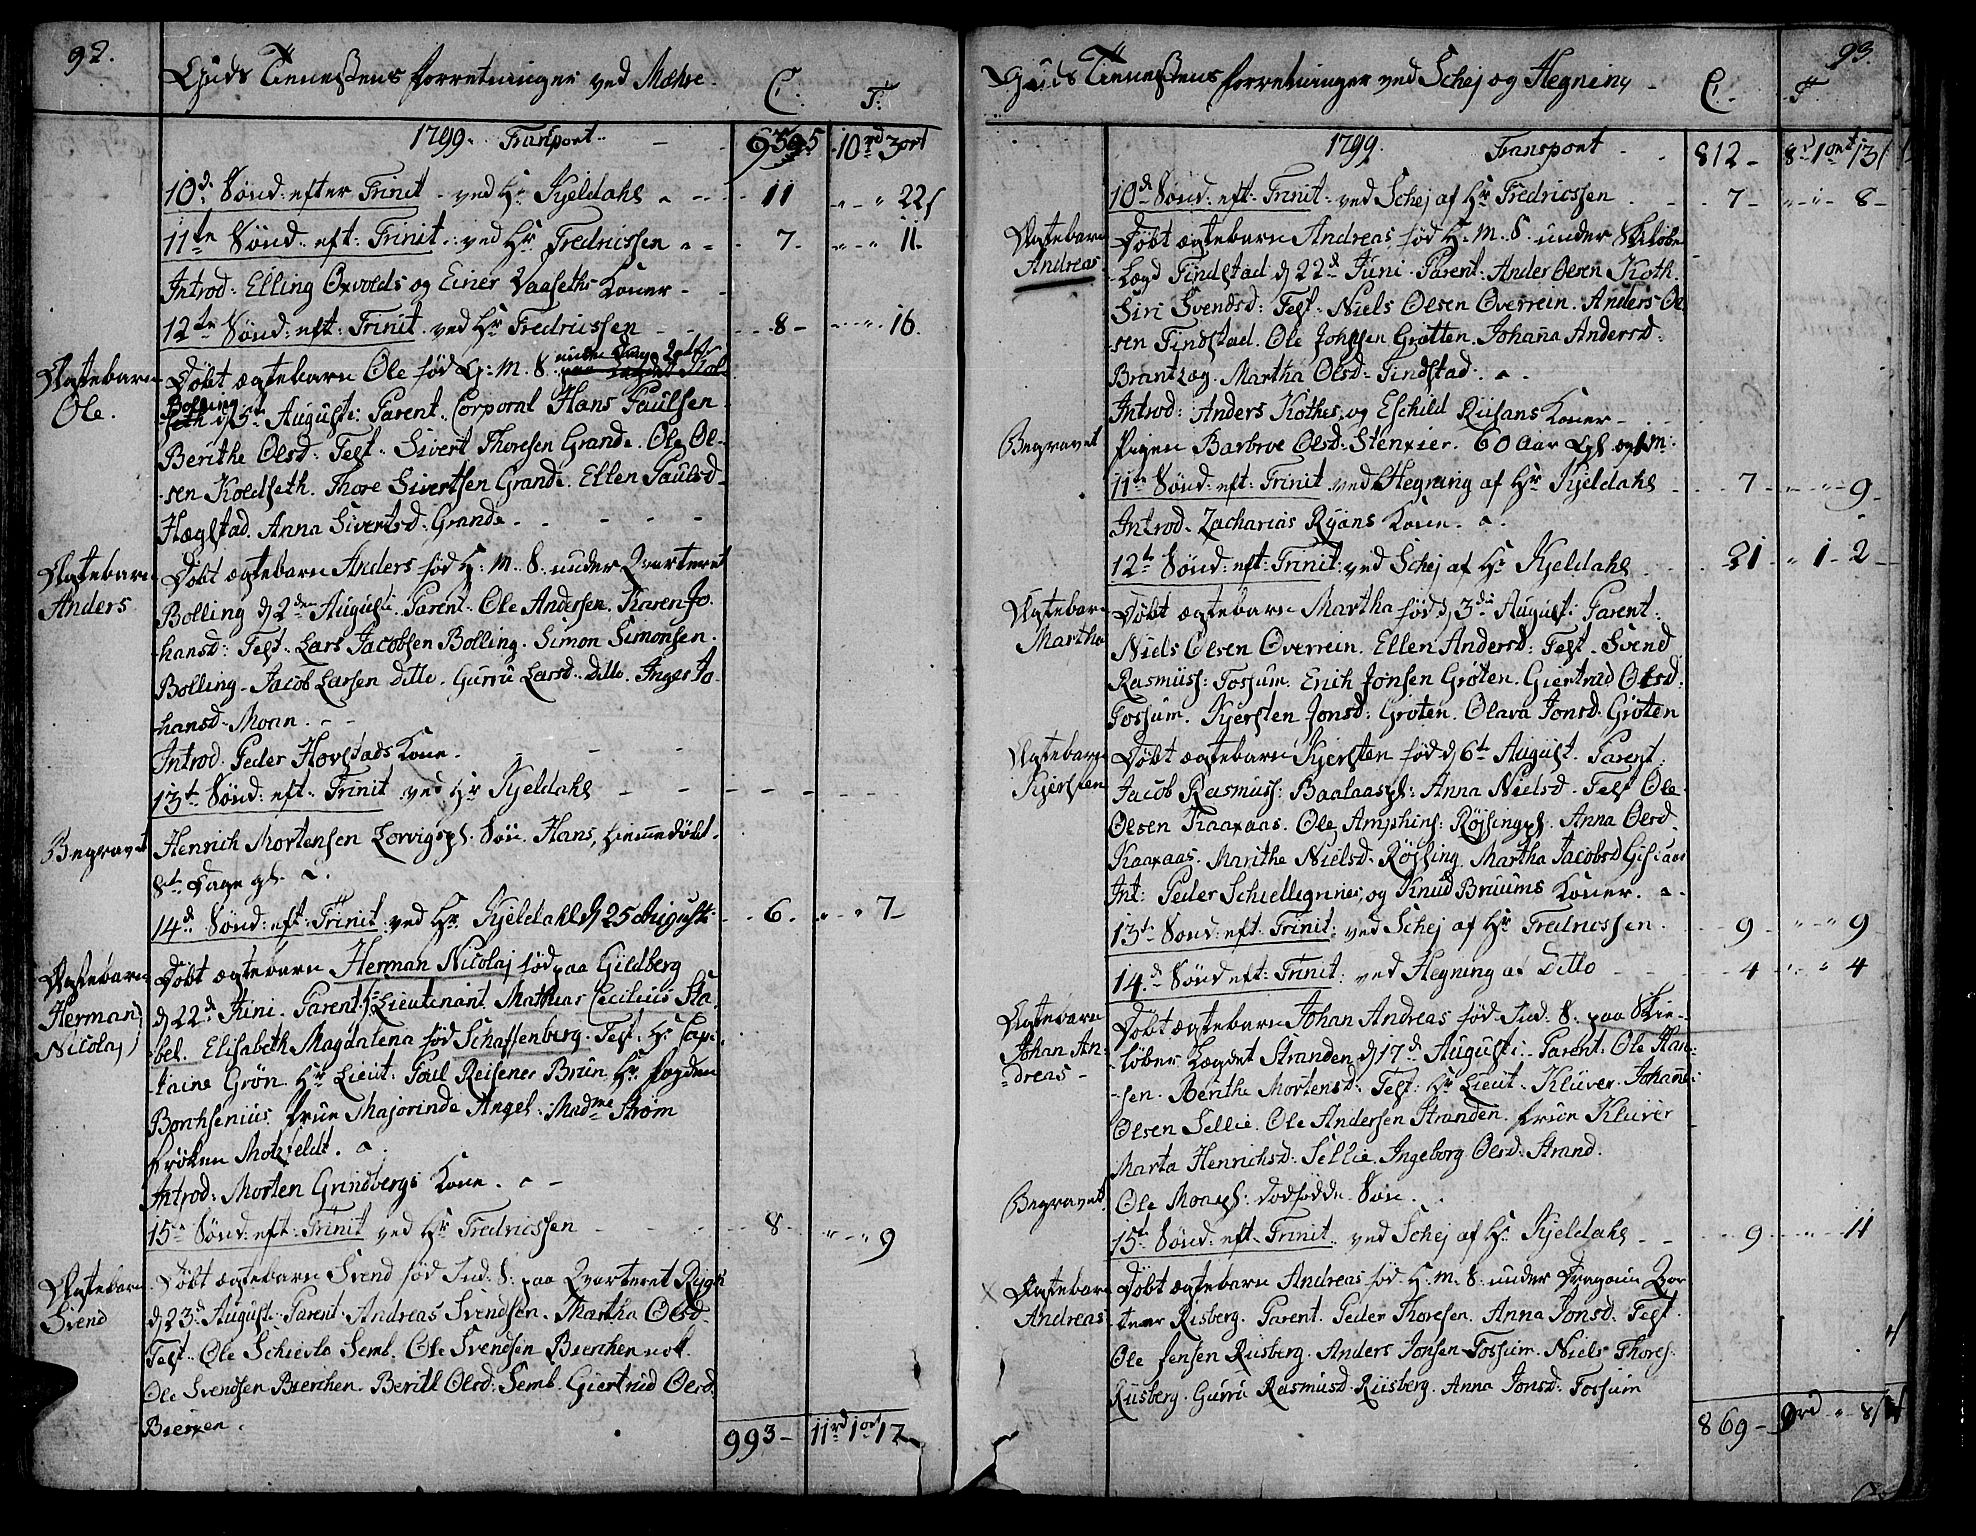 92.
Guds Tienestens forretninger ved Mælvæ.
C: T:
1799. Transport 10rd 3ort
10de Sønd: efter Trinit - ved Hr Kjeldahl 11 " " 22ſ
11te Sønd: eft: Trinit: ved Hr Fredricssen 7 " " 11
Introd: Elling Oxvolds og Einer Vaaseths Koner
12te Sønd: eft: Trinit. ved Hr Fredricssen 8 " " 16.
Ægtebarn
Ole.
Døbt ægtebarn Ole fød H: M: S: under
Bolling d 5te Augusti: Parent. Corporal Hans Paulsen
Berithe Olsd: Test. Sivert Thoresen Grande. Ole Ol-
-sen Koldseth. Thore Sivertsen Grande. Ellen Paulsd
Hægstad. Anna Sivertsd: Grande.
Ægtebarn
Anders
Døbt ægtebarn Anders fød H: M: S: under Qvarteret
Bolling d 2den Augusti. Parent: Ole Andersen. Karen Jo-
hansd: Test: Lars Jacobsen Bolling. Simon Simonsen.
Bolling. Jacob Larsen ditto. Gurru Larsd. ditto. Inger Jo-
hansd: Moan.
Introd: Peder Hovstads Kone.
13te Sønd: eft: Trinit ved Hr Kjeldahl
Begravet
Henrich Mortensen Lorvigspl: Søn. Hans, hiemmedøbt.
8te Dage gl.
14de Sønd: eft: Trinit ved Hr: Kjeldahl d 25 Augusti 6. " " 7
Ægtebarn
Herman
Nicolaj
Døbt ægtebarn Herman Nicolaj fød paa Gildberg
d 22de Juni. Parent: Hr Lieutenant Mathias Cecilius Sta-
bel. Elisabeth Magdalena fød Schaffenberg. Test: Hr Cap-
taine Grøn Hr Lieut: Poul Reisener Brun Hr fogden
Borchsenius. Frue Majorinde Angel. Madme Strøm
Frøken Motzfeldt.
Introd: Morten Grindbergs Kone.
15de Sønd: eft: Trinit ved Hr Fredricssen 8 " " 9
Ægtebarn
Svend
Døbt ægtebarn Svend fød Ind: S: paa Qvarteret Rygh
d 23de August: Parent. Andreas Svendsen. Martha Olsd.
Test. Ole Schiesto Semb. Ole Svendsen Bierchen
Ole Svendsen Bierchen. Beritt Olsd: Semb. Giertrud Olsd.
Bierken.
993 11rd 1ort 17
93.
Guds Tienestens forretninger ved Schej og Hegning
C. T
1799. Transport 812 8rd 1ort 13ſ
10de Sønd: eft: Trinit: ved Schej af Hr Fredricssen 7 " " 8
Ægtebarn
Andreas
Døbt ægtebarn Andreas fød H: M: S: under Skiløbe
Lægd Findstad d 22de Juni. Parent: Ander Olsen Koth.
Siri Svendsd: Test: Niels Olsen Overrein. Anders Ol-
sen Findstad. Ole Johnsen Grøtten. Johana Andersd:
Brantzæg. Martha Olsd: Findstad.
Introd: Anders Kothes, og Eschild Riisans Koner
Begravet
Pigen Barbroe Olsd. Stenkier. 60 Aar
11te Sønd: eft: Trinit ved Hegning af Hr Kjeldahl 7 " " 9
Introd. Zacharias Ryans Kone.
12te Sønd: eft: Trinit: ved Schej af Hr Kjeldahl 21 " 1 2
Ægtebarn
Martha
Døbt ægtebarn Martha fød d 3die August: Parent:
Niels Olsen Overrein. Ellen Andersd: Test. Svend
Rasmuss: Fossum. Erich Jonsen Grøten. Giertrud Olsd:
Fossum. Kjersten Jonsd: Grøten. Olava Jonsd: Grøten
Ægtebarn
Kjersten
Døbt ægtebarn Kjersten fød d 6te August. Parent:
Jacob Rasmuss: Baalaaspl: Anna Nielsd. Test Ole
Olsen Kaaraas. Ole Amphins: Røjsingpl. Anna Olsd.
Kaaraas. Marithe Nielsd. Røjsing. Martha Jacobsd
Int: Peder Schiellegrinds, og Knud Bruums Koner.
13te Sønd: eft: Trinit: ved Schej af Hr Fredricssen 9 " " 9
14de Sønd eft: Trinit: ved Hegning af Ditto 4 " " 4
Ægtebarn
Johan An-
-dreas
Døbt ægtebarn Johan Andreas fød Ind: S: paa Skie-
løber Lægdet Stranden d 17de August: Parent: Ole Han-
-sen. Berthe Mortensd: Test: Hr Lieut. Klüver. Johannes
Olsen Sellie. Ole Andersen Stranden. Frue Klüver
Marta Henrichsd: Sellie. Ingeborg Olsd: Strand.
Begravet
Ole Moespl: dødfødde Søn.
15te Sønd: eft. Trinit. ved Schej af Hr Kjeldahl 9 " " 11
Ægtebarn
Andreas
Døbt ægtebarn Andreas fød H: M: S: under Dragoun Qvar
teer Risberg. Parent. Peder Thoresen. Anna Jonsd: Test.
Ole Jensen Riisberg. Anders Jonsen Fossum. Niels Thores.
Riisberg. Gurru Rasmusd. Riisberg. Anna Jonsd: Fossum
869 9rd " 8ſ